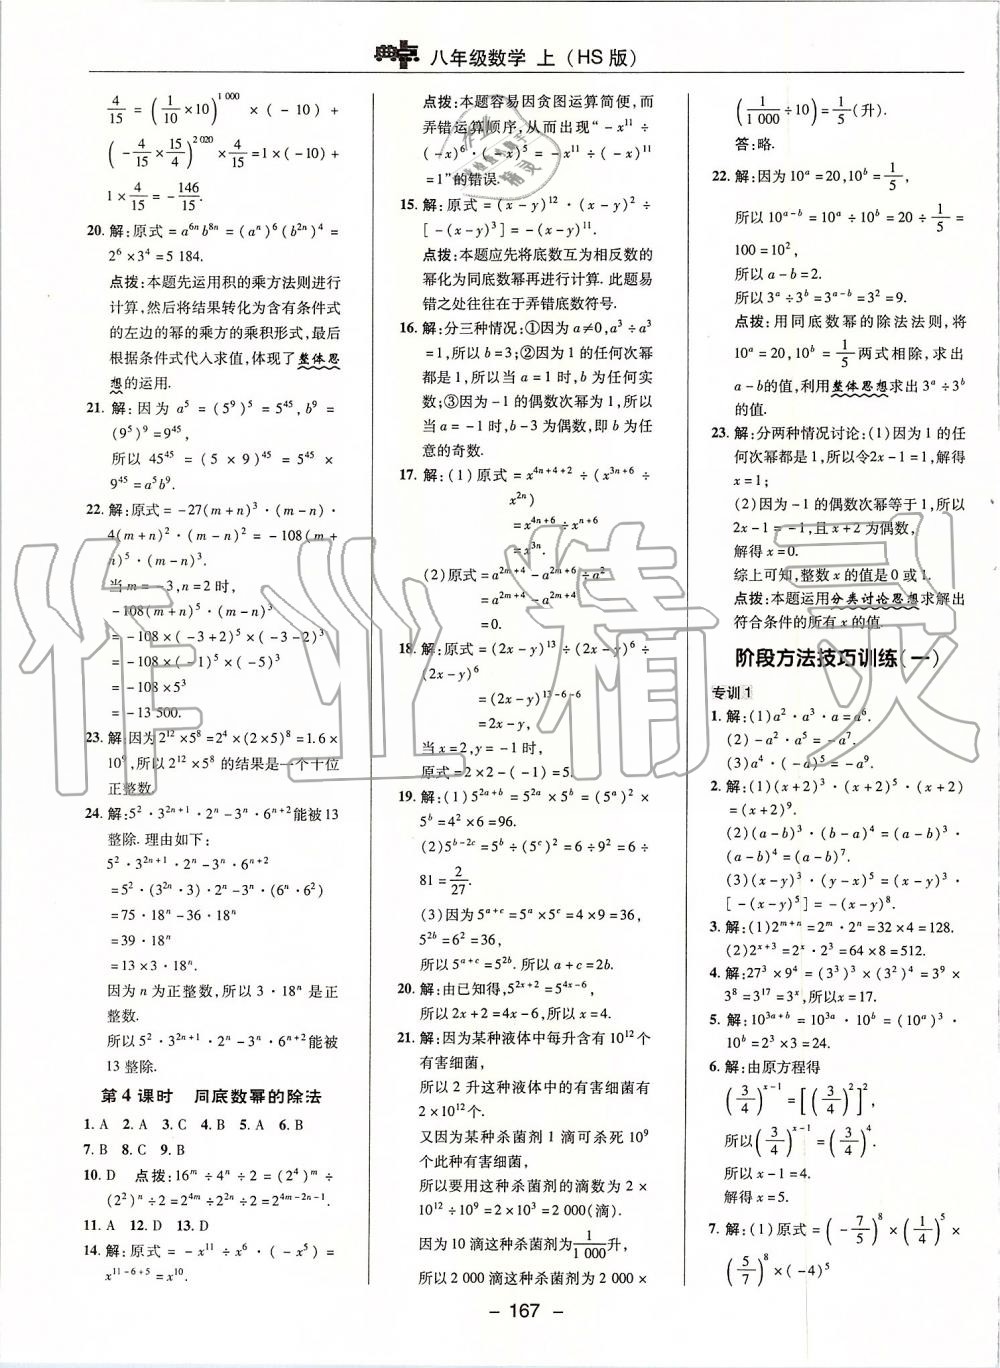 典点 八年级数学 上(HS版)
4/15 = (1/10×10)^1 000 ×(-10)+
(-4/15×15/4)^2 020 ×4/15=1×(-10)+
1×4/15=-146/15.
20. 解:原式=a^6n b^8n=(a^n)^6(b^2n)^4=
2^6×3^4=5 184.
点拨:本题先运用积的乘方法则进行
计算,然后将结果转化为含有条件式
的左边的幂的乘方的乘积形式,最后
根据条件式代入求值,体现了整体思
想的运用.
21. 解:因为 a^5=(5^9)^5=5^45,b^9=
(9^5)^9=9^45,
所以 45^45=(5×9)^45=5^45×
9^45=a^5b^9.
22. 解:原式=-27(m+n)^3·(m-n)·
4(m+n)^2·(m-n)^2=-108(m+
n)^5·(m-n)^3.
当m=-3,n=2时,
-108(m+n)^5·(m-n)^3
=-108×(-3+2)^5×(-5)^3
=-108×(-1)^5×(-5)^3
=-108×5^3
=-13 500.
23. 解:因为2^12×5^8=2^4×(2×5)^8=1.6×
10^9,所以2^12×5^8的结果是一个十位
正整数.
24. 解:5^2·3^2n+1·2^n-3^n·6^n+2能被13
整除.理由如下:
5^2·3^2n+1·2^n-3^n·6^n+2
=5^2·(3^2n·3)·2^n-3^n·(6^n·6^2)
=75·18^n-36·18^n
=39·18^n
=13×3·18^n.
因为n为正整数,所以3·18^n是正
整数.
所以5^2·3^2n+1·2^n-3^n·6^n+2能被
13整除.
第4课时 同底数幂的除法
1. A 2. A 3. C 4. B 5. A 6. B
7. B 8. C 9. B
10. D 点拨:16^m÷4^n÷2=(2^4)^m÷
(2^2)^n÷2=2^4m÷2^2n÷2=2^4m-2n-1.
11. A 12. D 13. D
14. 解:原式=-x^11÷x^6·(-x^5)=
x^11-6+5=x^10.
点拨:本题容易因贪图运算简便,而
弄错运算顺序,从而出现“-x^11÷
(-x)^6·(-x)^5=-x^11÷(-x)^11
=1”的错误.
15. 解:原式=(x-y)^12·(x-y)^2÷
[-(x-y)^3]=-(x-y)^11.
点拨:本题应先将底数互为相反数的
幂化为同底数幂再进行计算.此题易
错之处往往在于弄错底数符号.
16. 解:分三种情况:①因为a≠0,a^3÷a^3
=1,所以b=3;②因为1的任何次幂
都是1,所以当a=1时,b为任何实
数;③因为-1的偶数次幂为1,所以
当a=-1时,b-3为偶数,即b为任
意的奇数.
17. 解:(1)原式=x^4n+4+2÷(x^3n+6÷
x^2n)
=x^4n+6÷x^n+6
=x^3n.
(2)原式=a^2m+4-a^2m+6÷a^2
=a^2m+4-a^2m+4
=0.
18. 解:原式=(2x-y)^13÷(2x-y)^6÷
(2x-y)^6
=(2x-y)^13-6-6
=2x-y,
当x=2,y=-1时,
原式=2×2-(-1)=5.
19. 解:(1)5^2a+b=5^2a×5^b=(5^a)^2×
5^b=4^2×6=96.
(2)5^b-2c=5^b÷(5^c)^2=6÷9^2=6÷
81=2/27.
(3)因为5^a+c=5^a×5^c=4×9=36,
5^2b=6^2=36,
所以5^a+c=5^2b,所以a+c=2b.
20. 解:由已知得,5^2x+2=5^4x-6,
所以2x+2=4x-6,所以x=4.
21. 解:因为某种液体中每升含有10^12个
有害细菌,
所以2升这种液体中的有害细菌有
2×10^12个.
又因为某种杀菌剂1滴可杀死10^9
个此种有害细菌,
所以要用这种杀菌剂的滴数为2×
10^12÷10^9=2×10^3=2 000(滴).
因为10滴这种杀菌剂为1/1 000升,
所以2 000滴这种杀菌剂为2 000×
(1/1 000÷10)=1/5(升).
答:略.
22. 解:因为10^a=20,10^b=1/5,
所以10^a-b=10^a÷10^b=20÷1/5=
100=10^2,
所以a-b=2.
所以3^a÷3^b=3^a-b=3^2=9.
点拨:用同底数幂的除法法则,将
10^a=20,10^b=1/5两式相除,求出
a-b的值,利用整体思想求出3^a÷3^b
的值.
23. 解:分两种情况讨论:(1)因为1的任
何次幂都是1,所以令2x-1=1,解得
x=1;
(2)因为-1的偶数次幂等于1,所以
2x-1=-1,且x+2为偶数,
解得x=0.
综上可知,整数x的值是0或1.
点拨:本题运用分类讨论思想求解出
符合条件的所有x的值.
阶段方法技巧训练(一)
专训1
1. 解:(1)a^2·a^3·a=a^6.
(2)-a^2·a^5=-a^7.
(3)a^4·(-a)^5=-a^9.
2. 解:(1)(x+2)^3·(x+2)^5·(x+2)
=(x+2)^9.
(2)(a-b)^3·(b-a)^4=(a-b)^3·
(a-b)^4=(a-b)^7.
(3)(x-y)^3·(y-x)^5=(x-y)^3·
[-(x-y)^5]=-(x-y)^8.
3. 解:(1)2^m+n=2^m·2^n=32×4=128.
(2)2^x+3=2^x·2^3=64×8=512.
4. 解:27^3×9^4=(3^3)^3×(3^2)^4=3^9×
3^8=3^17=3^x,所以x=17.
5. 解:10^3a+b=10^3a·10^b=(10^a)^3·
10^b=2^3×3=24.
6. 解:由原方程得
(3/4)^x-1=[(3/4)^2]^2,
所以(3/4)^x-1=(3/4)^4.
所以x-1=4.
解得x=5.
7. 解:(1)原式=(-7/5)^8×(1/4)^5×
(5/7)^8×(-4)^5
- 167 -
作业精灵